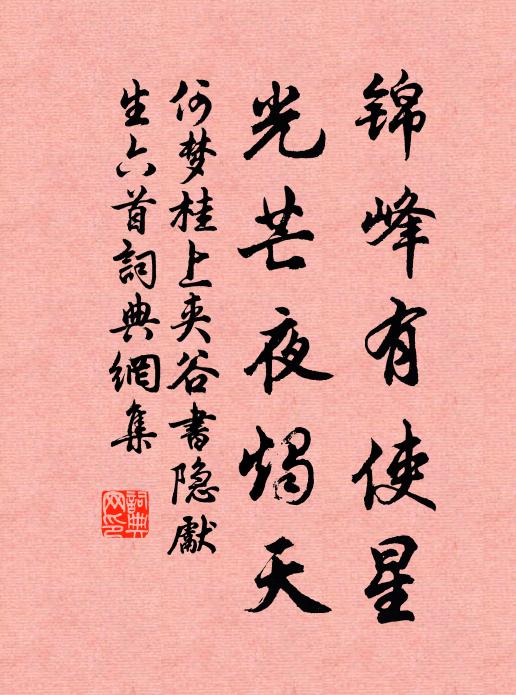 锦峰有使星
光芒夜烛天
何梦桂上夹谷书隐献
生六首詞典網集
詞典网印